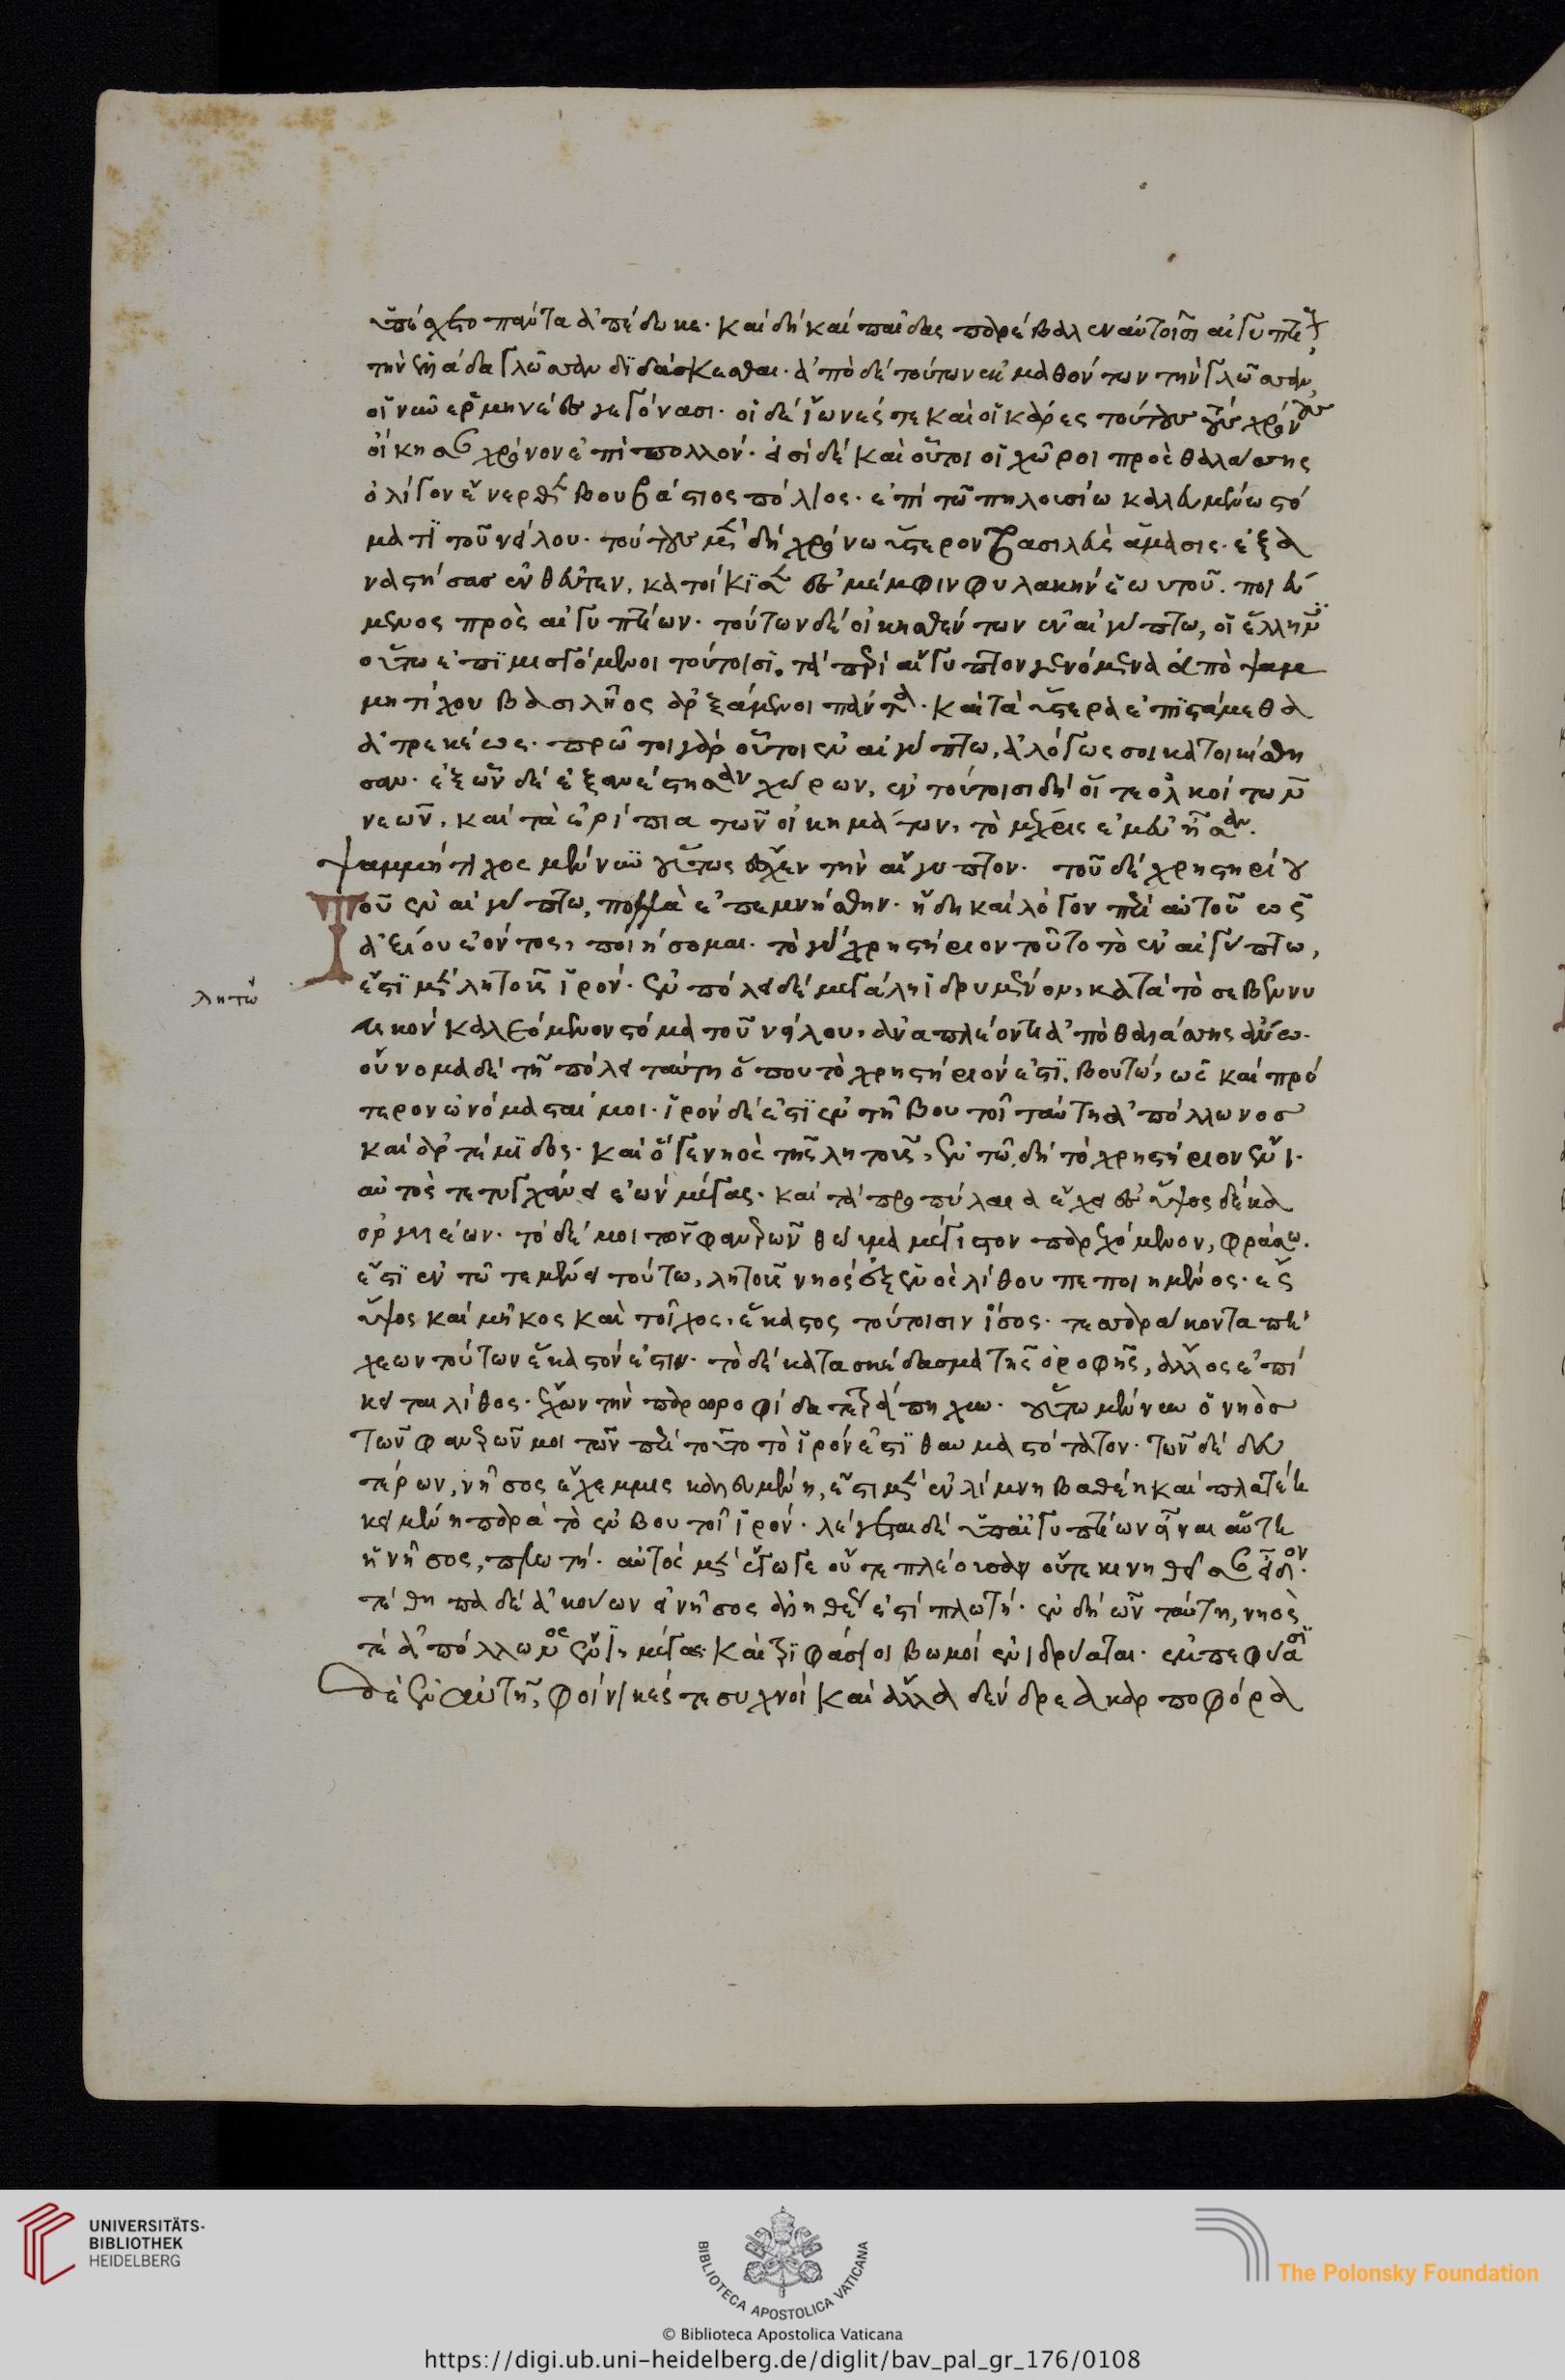 ὑπέσχετο πάντα ἀπέδωκε. καὶ δὴ καὶ παῖδας παρέβαλεν αὐτοῖσι αἰγυπτίους
τὴν ἑλλάδα γλῶσσαν διδάσκεσθαι. ἀπὸ δὲ τούτων ἐκμαθόντων τὴν γλῶσσαν,
οἱ νῦν ἑρμηνέες γεγόνασι. οἱ δὲ ἴωνές τε καὶ οἱ κάρες τούτους τοὺς χώρους
οἴκησαν χρόνον ἐπὶ πολλόν. εἰσὶ δὲ καὶ οὗτοι οἱ χῶροι πρὸς θαλάσσης
ὀλίγον ἔνερθεν βουβάστιος πόλιος. ἐπὶ τῷ πηλουσίω καλευμένω στό
ματι τοῦ νείλου. τούτους μὲν δὴ χρόνω ὕστερον βασιλεὺς ἄμασις. ἐξα
ναστήσας ἐνθεῦτεν, κατοίκισεν ἐς μέμφιν φυλακὴν ἑωυτοῦ. ποιεύ
μενος πρὸς αἰγυπτίων. τούτων δὲ οἰκησθέντων ἐν αἰγύπτω, οἱ ἕλληνες
οὕτω ἐπιμισγόμενοι τούτοισι. τὰ περὶ αἴγυπτον γενόμενα ἀπὸ ψαμ
μητίχου βασιλῆος ἀρξάμενοι πάντα. καὶ τὰ ὕστερα ἐπιστάμεθα
ἀτρεκέως. πρῶτοι γὰρ οὗτοι ἐν αἰγύπτω, ἀλόγλωσσοι κατοικίσθη
σαν. ἐξ ὧν δὲ ἐξανέστησαν χώρων, ἐν τούτοισι δὴ οἵ τε ὁλκοὶ τῶν
νεῶν, καὶ τὰ ἐρίπια τῶν οἰκημάτων, τὸ μέχρις ἐμεῦ ἦσαν.
ψαμμήτιχος μέν νυν οὕτως ἔσχεν τὴν αἴγυπτον. τοῦ δὲ χρηστηρίου
Τοῦ ἐν αἰγύπτω, πολλὰ ἐπεμνήσθην. ἤδη καὶ λόγον περὶ αὐτοῦ ὡς
ἀξίου ἐόντος, ποιήσομαι. τὸ γὰρ χρηστήριον τοῦτο τὸ ἐν αἰγύπτω,
λητώ
ἔστι μὲν λητοῦς ἱρόν. ἐν πόλει δὲ μεγάλη ἱδρυμένον, κατὰ τὸ σεβεννυ
τικὸν καλεόμενον στόμα τοῦ νείλου, ἀναπλέοντι ἀπὸ θαλάσσης ἄνω.
οὔνομα δὲ τῇ πόλει ταύτη ὅπου τὸ χρηστήριόν ἐστι. βουτώ, ὡς καὶ πρό
τερον ὠνόμασταί μοι. ἱρὸν δέ ἐστι ἐν τῇ βουτοῖ ταύτη ἀπόλλωνος
καὶ ἀρτέμιδος. καὶ ὅ γε νηὸς τῆς λητοῦς, ἐν τῷ δὴ τὸ χρηστήριον ἔνι.
αὐτός τε τυγχάνει ἐὼν μέγας. καὶ τὰ προπύλαια ἔχει ἐς ὕψος δέκα
ὀργυιέων. τὸ δέ μοι τῶν φανερῶν θώυμα μέγιστον παρεχόμενον, φράσω.
ἔστι ἐν τῷ τεμένει τούτω, λητοῦς νηὸς ἐξ ἑνὸς λίθου πεποιημένος. ἐς
ὕψος καὶ μῆκος καὶ τοῖχος. ἕκαστος τούτοισιν ἴσος. τεσσεράκοντα πή
χεων τούτων ἕκαστόν ἐστιν. τὸ δὲ καταστέγασμα τῆς ὀροφῆς, ἄλλος ἐπί
κειται λίθος. ἔχων τὴν παρωροφίδα τετράπηχυν. οὕτω μέν νυν ὁ νηὸς
τῶν φανερῶν μοι τῶν περὶ τοῦτο τὸ ἱρόν ἐστι θαυμαστότατον. τῶν δὲ δευ
τέρων, νῆσος ἡ χέμμις καλευμένη, ἔστι μὲν ἐν λίμνη βαθέη καὶ πλατέη
κειμένη παρὰ τὸ ἐν βουτοῖ ἱρόν. λέγεται δὲ ὑπ' αἰγυπτίων εἶναι αὕτη
ἡ νῆσος, πλωτή. αὐτὸς μὲν ἔγωγε οὔτε πλέουσαν οὔτε κινηθεῖσαν εἶδον.
τέθηπα δὲ ἀκούων εἰ νῆσος ἀληθέως ἐστὶ πλωτή. ἐν δὴ ὦν ταύτη, νηός
τε ἀπόλλωνος ἔνι, μέγας. καὶ τριφάσιοι βωμοὶ ἐνιδρύαται. ἐμπεφύασι
δὲ ἐν αὐτῇ, φοίνικές τε συχνοὶ καὶ ἄλλα δένδρεα καρποφόρα
UNIVERSITÄTS-
BIBLIOTHEK
HEIDELBERG
BIBLIOTECA APOSTOLICA VATICANA
The Polonsky Foundation
© Biblioteca Apostolica Vaticana
https://digi.ub.uni-heidelberg.de/diglit/bav_pal_gr_176/0108